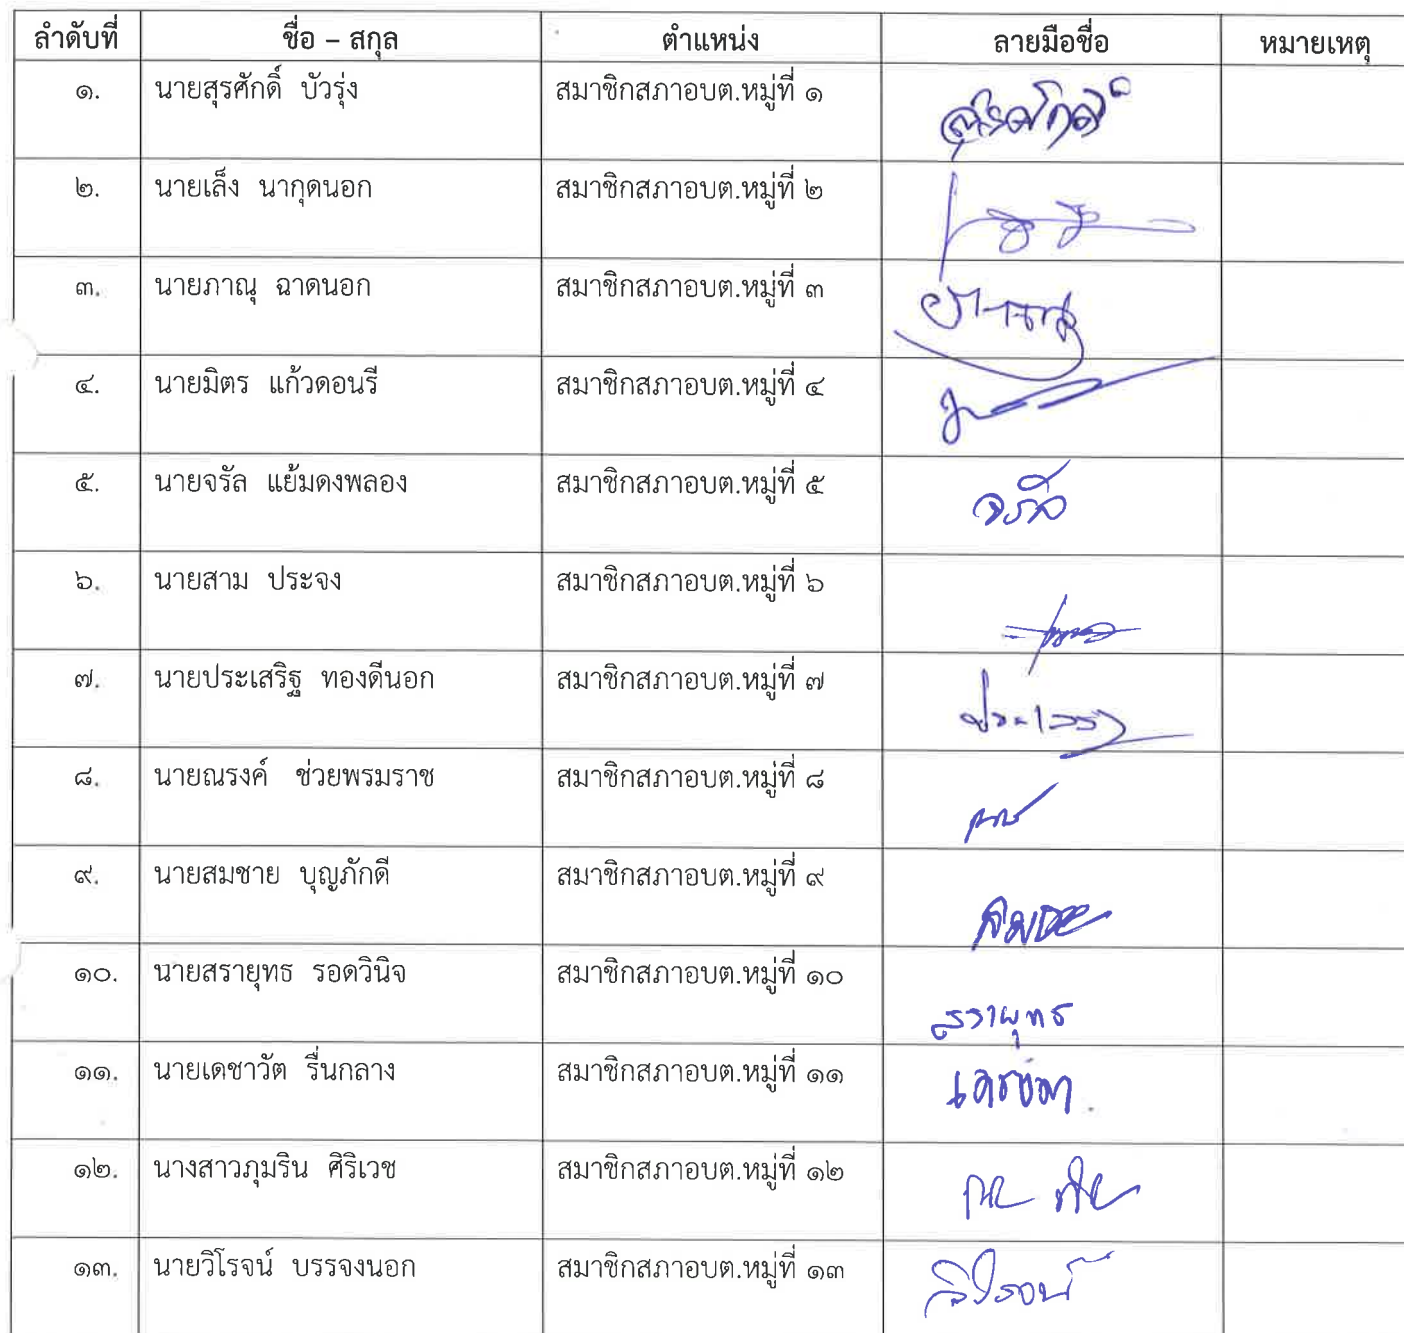 ลำดับที่ ชื่อ – สกุล ตำแหน่ง ลายมือชื่อ หมายเหตุ
๑. นายสุรศักดิ์ บัวรุ่ง สมาชิกสภาอบต.หมู่ที่ ๑ สุรศักดิ์
๒. นายเล็ง นากุดนอก สมาชิกสภาอบต.หมู่ที่ ๒
๓. นายภาณุ ฉาดนอก สมาชิกสภาอบต.หมู่ที่ ๓
๔. นายมิตร แก้วดอนรี สมาชิกสภาอบต.หมู่ที่ ๔
๕. นายจรัล แย้มดงพลอง สมาชิกสภาอบต.หมู่ที่ ๕ จรัล
๖. นายสาม ประจง สมาชิกสภาอบต.หมู่ที่ ๖
๗. นายประเสริฐ ทองดีนอก สมาชิกสภาอบต.หมู่ที่ ๗
๘. นายณรงค์ ช่วยพรมราช สมาชิกสภาอบต.หมู่ที่ ๘
๙. นายสมชาย บุญภักดี สมาชิกสภาอบต.หมู่ที่ ๙ สมชาย
๑๐. นายสรายุทธ รอดวินิจ สมาชิกสภาอบต.หมู่ที่ ๑๐ สรายุทธ
๑๑. นายเดชาวัต รื่นกลาง สมาชิกสภาอบต.หมู่ที่ ๑๑
๑๒. นางสาวภุมริน ศิริเวช สมาชิกสภาอบต.หมู่ที่ ๑๒
๑๓. นายวิโรจน์ บรรจงนอก สมาชิกสภาอบต.หมู่ที่ ๑๓ วิโรจน์